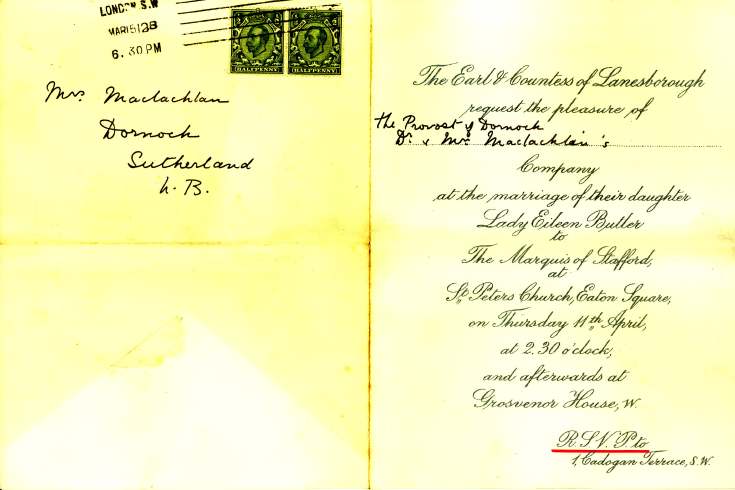 LONDON S.W
MAR 15 12 B
6.30 PM
HALFPENNY HALFPENNY
Mrs Maclachlan
Dornoch
Sutherland
N.B.
The Earl & Countess of Lanesborough
request the pleasure of
the Provost of Dornoch
Dr & Mrs Maclachlan's
Company
at the marriage of their daughter
Lady Eileen Butler
to
The Marquis of Stafford,
at
St Peters Church, Eaton Square,
on Thursday 11th April,
at 2.30 o'clock,
and afterwards at
Grosvenor House, W.
R.S.V.P. to
1, Cadogan Terrace, S.W.